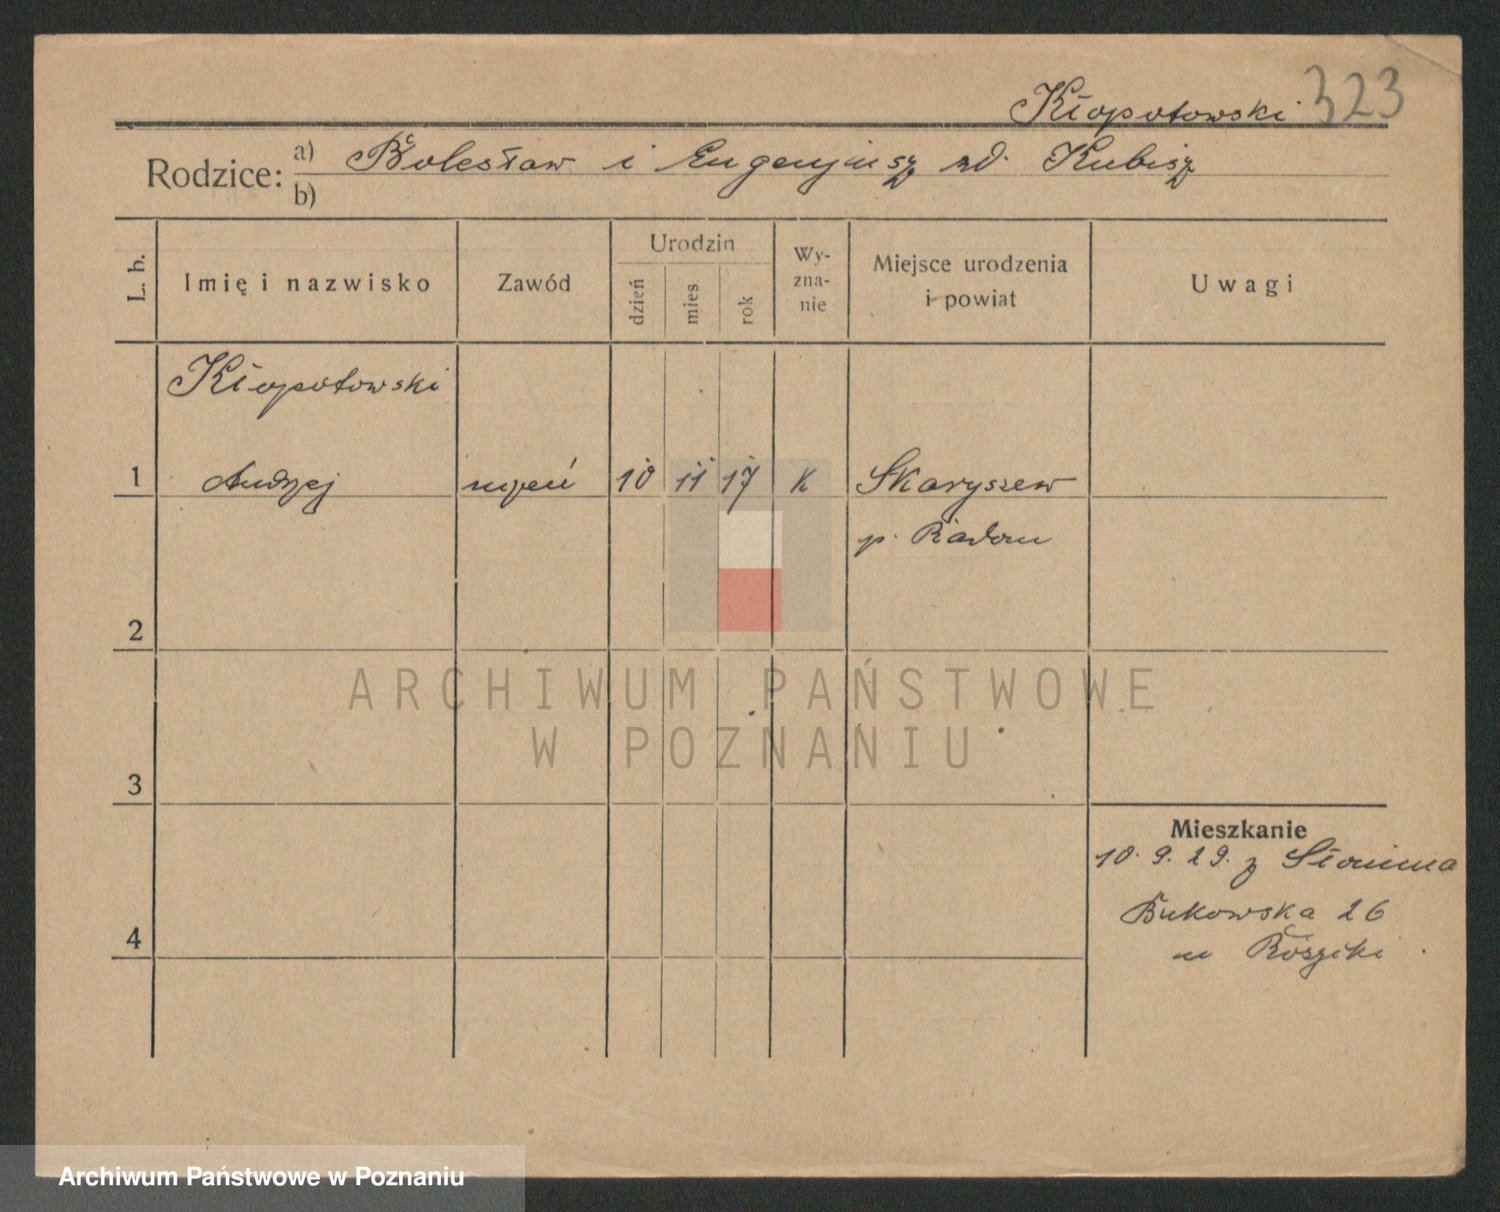 Kłopotowski 323
Rodzice: a) Bolesław i Eugenjusz zd. Kubisz
b)
L. b. Imię i nazwisko Zawód Urodzin dzień mies. rok Wy-zna-nie Miejsce urodzenia i powiat Uwagi
Kłopotowski
1 Andrzej uczeń 10 11 17 K Skaryszew
p. Radom
2
ARCHIWUM PAŃSTWOWE
W POZNANIU
3
Mieszkanie
10. 9. 29. z Słonima
Bukowska 26
4
u
Archiwum Państwowe w Poznaniu